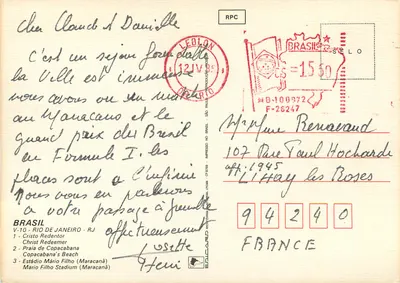 RPC
Cher Claude et Danielle
C'est un séjour formidable
la Ville est immense
nous avons vu un match
au Maracana et le
grand prix du Bresil
en Formule I. les
places sont a l'infini
nous vous en parlerons
a votre passage à Grenoble
affectueusement
Josette
Henri
BRASIL
V-10 - RIO DE JANEIRO - RJ
1 - Cristo Redentor
Christ Redeemer
2 - Praia de Copacabana
Copacabana's Beach
3 - Estádio Mário Filho (Maracanã)
Mário Filho Stadium (Maracanã)
LEBLON
12 IV
BRASIL
SELO
15 50
MB-100972
F-26247
Mr Mme Renavaud
107 Rue Paul Hochard
app. 1945
L'Hay les Roses
94240
FRANCE